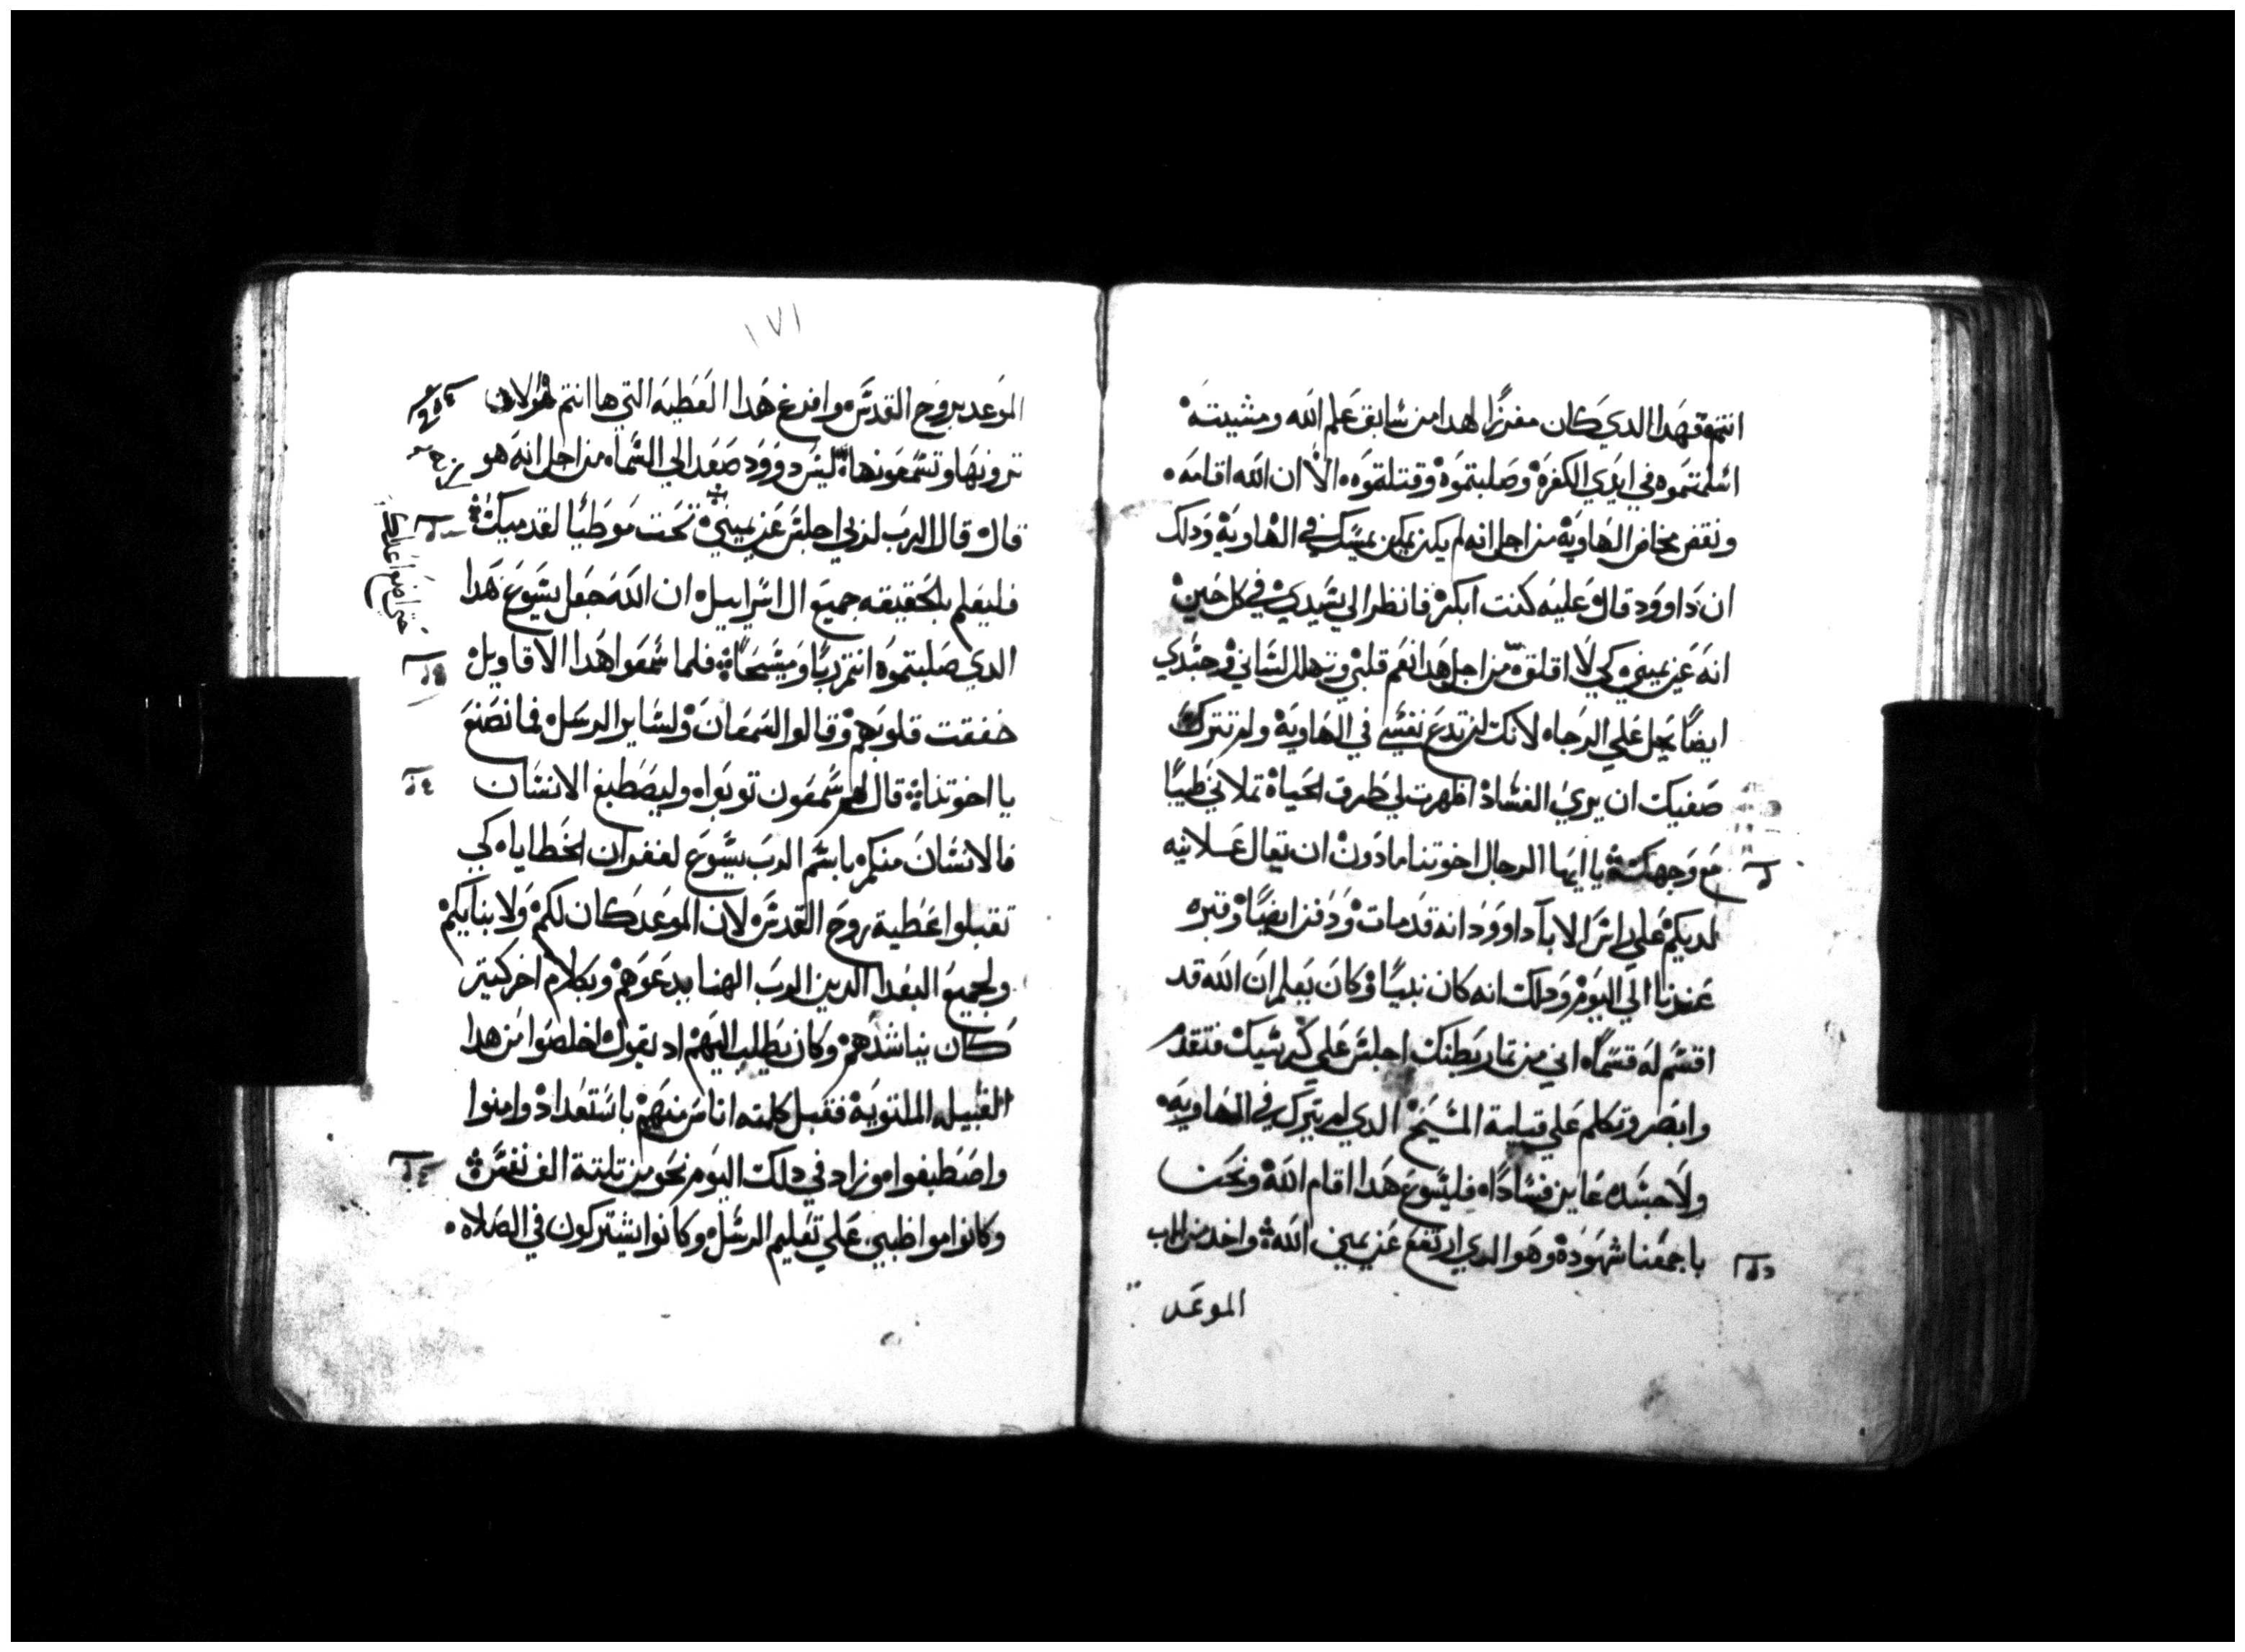 انتم فهدا الدي كان مفرزًا لهدا من سابق علم الله ومشيته
اسلمتموه في ايدي الكفرة وصلبتموه وقتلتموه الا ان الله اقامه
ونقض مخاض الهاوية من اجل انه لم يكن يمكن يمسك في الهاوية ودلك
ان داوود قال عليه كنت ابكر فانظر الي سيدي في كل حين
انه عن يميني كي لا اقلق من اجل هدا نعم قلبي وتهلل لساني وجسدي
ايضًا يحل علي الرجاء لانك لن تدع نفسي في الهاوية ولم تترك
صفيك ان يري الفساد اظهرت لي طرق الحياة تملاني طيبًا
مع وجهك يا ايها الرجال اخوتنا مادون ان تقال علانيه
لديكم علي راس الابا داوود انه قد مات ودفن ايضًا وقبره
عندنا الي اليوم ودلك انه كان نبيًا وكان يعلم ان الله قد
اقسم له قسمًا اني من تمار بطنك اجلس علي كرسيك فتقدم
وابصر وتكلم علي قيامة المسيح الدي لم يترك في الهاوية
ولا جسده عاين فسادًا فليسوع هدا اقام الله ونحن
باجمعنا شهوده وهو الدي ارتفع عن يمين الله واخد من الاب
الموعد
١٧١
الموعد بروح القدس وافرغ هدا العطية التي ها انتم هولاى
ترونها وتسمعونها ليس داوود صعد الي السماء من اجل انه هو
قال قال الرب لربي اجلس عن يميني تحت موطيًا لقدميك
حتي اضع اعداك
فليعلم بالحقيقه جميع ال اسراييل ان الله جعل يسوع هدا
الدي صلبتموه انتم ربًا ومسيحًا فلما سمعوا هدا الاقاويل
خفقت قلوبهم وقالوا لسمعان ولساير الرسل فما نصنع
يا اخوتنا قال لهم سمعون توبوا وليصطبغ الانسان
فالانسان منكم باسم الرب يسوع لغفران الخطايا كي
تقبلوا عطية روح القدس لان الموعد كان لكم ولابنايكم
ولجميع البعدا الدين الرب الهنا يدعوهم وبكلام اخر كتير
كان يناشدهم وكان يطلب اليهم اد يقول اخلصوا من هدا
القبيله الملتوية فقبل كلمته اناس منهم باستعداد وامنوا
واصطبغوا وزاد في دلك اليوم نحو من تلتة الف نفس
وكانوا مواظبين علي تعليم الرسل وكانوا يشتركون في الصلاه